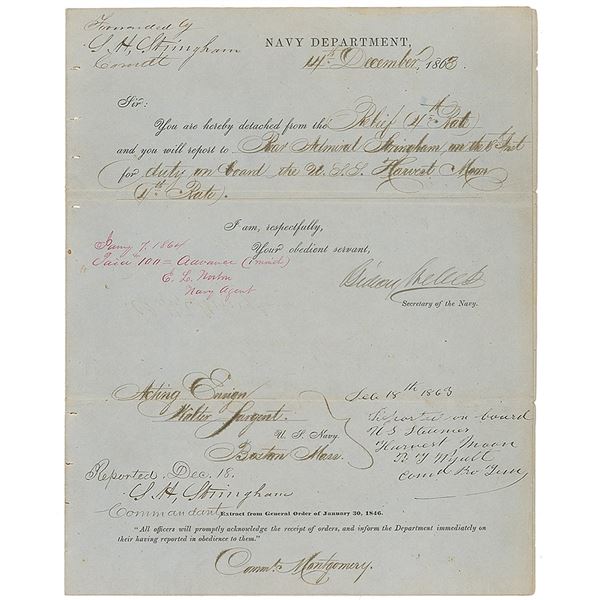 Forwarded by
S. H. Stringham
Comdt
NAVY DEPARTMENT,
14th December, 1863.
Sir:
You are hereby detached from the Relief (4th Rate)
and you will report to Rear Admiral Stringham on the
for duty on board the U. S. S. Harvest Moon
(4th Rate).
I am, respectfully,
Your obedient servant,
Secretary of the Navy.
Jany 7, 1864
Paid 100 = Advance
E. L. Norton
Navy Agent
Acting Ensign
Walter Sargent.
U. S. Navy.
Boston Mass.
Dec 18th 1863
Reported on board
U S Steamer
Harvest Moon
Reported. Dec. 18.
S. H. Stringham
Commandant
Extract from General Order of January 30, 1846.
"All officers will promptly acknowledge the receipt of orders, and inform the Department immediately on
their having reported in obedience to them."
Commo. Montgomery.